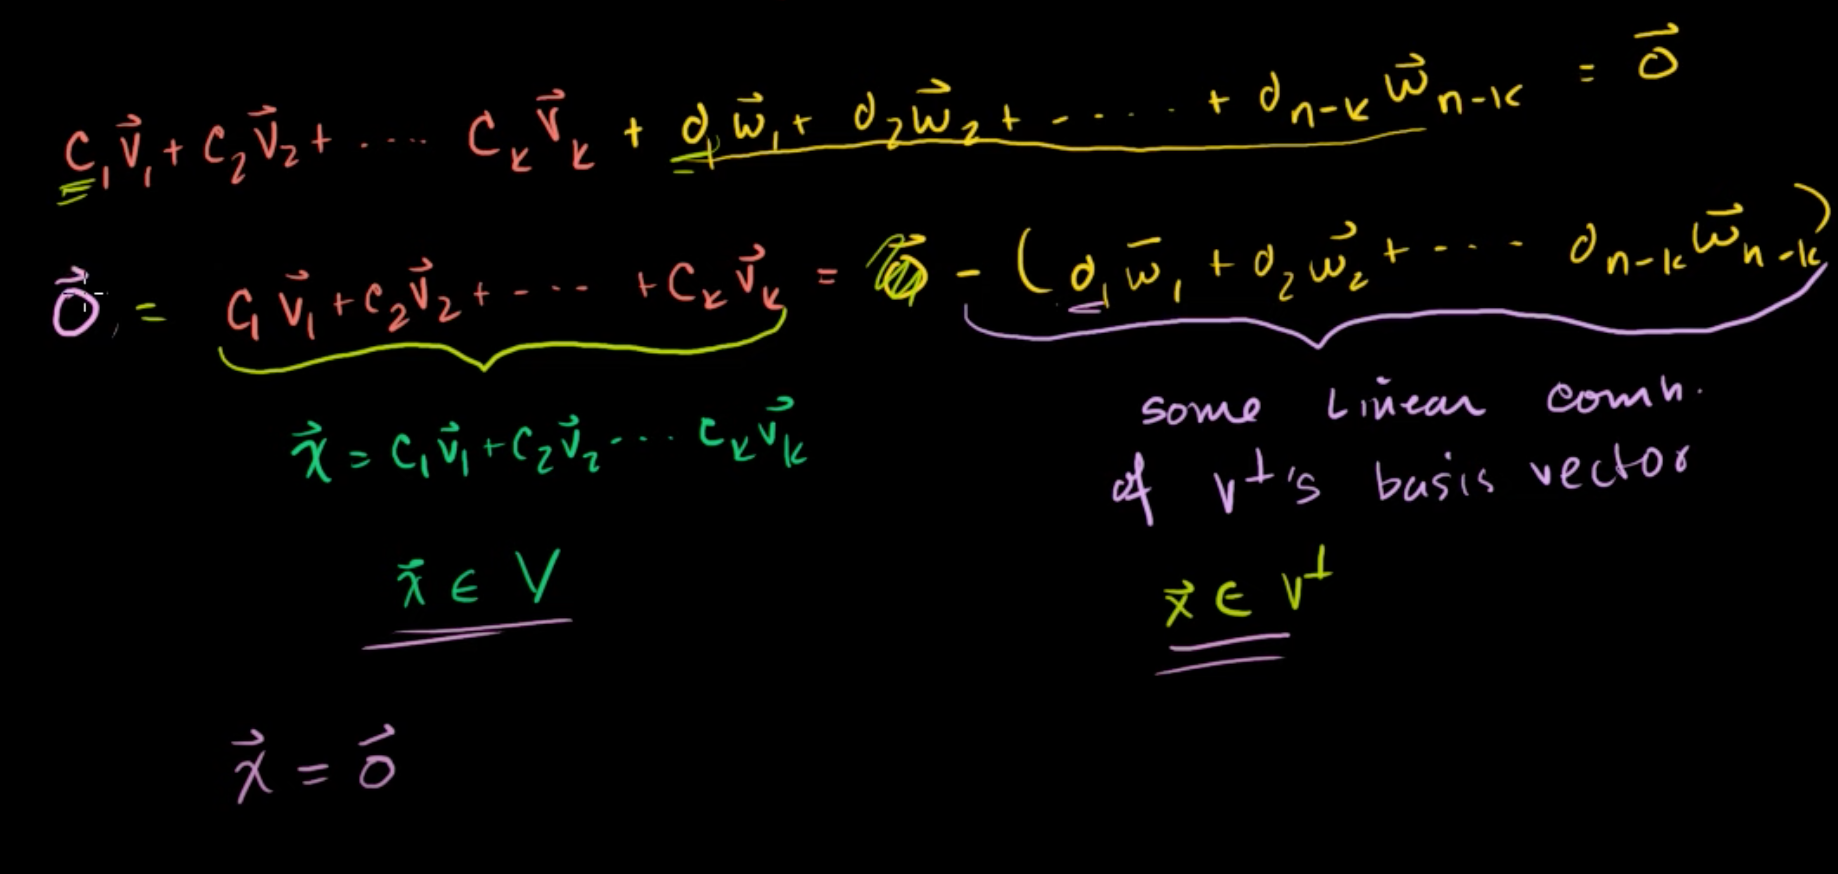 c₁v⃗₁ + c₂v⃗₂ + .... cₖv⃗ₖ + d₁w⃗₁ + d₂w⃗₂ + ..... + dₙ₋ₖw⃗ₙ₋ₖ = 0⃗
0⃗ = c₁v⃗₁ + c₂v⃗₂ + - ... + cₖv⃗ₖ = 0⃗ - (d₁w̄₁ + d₂w⃗₂ + - .. - dₙ₋ₖw⃗ₙ₋ₖ)
x⃗ = c₁v⃗₁ + c₂v⃗₂ .... cₖv⃗ₖ
some Linear comb.
of V⊥'s basis vector
x⃗ ∈ V
x⃗ ∈ V⊥
x⃗ = 0⃗